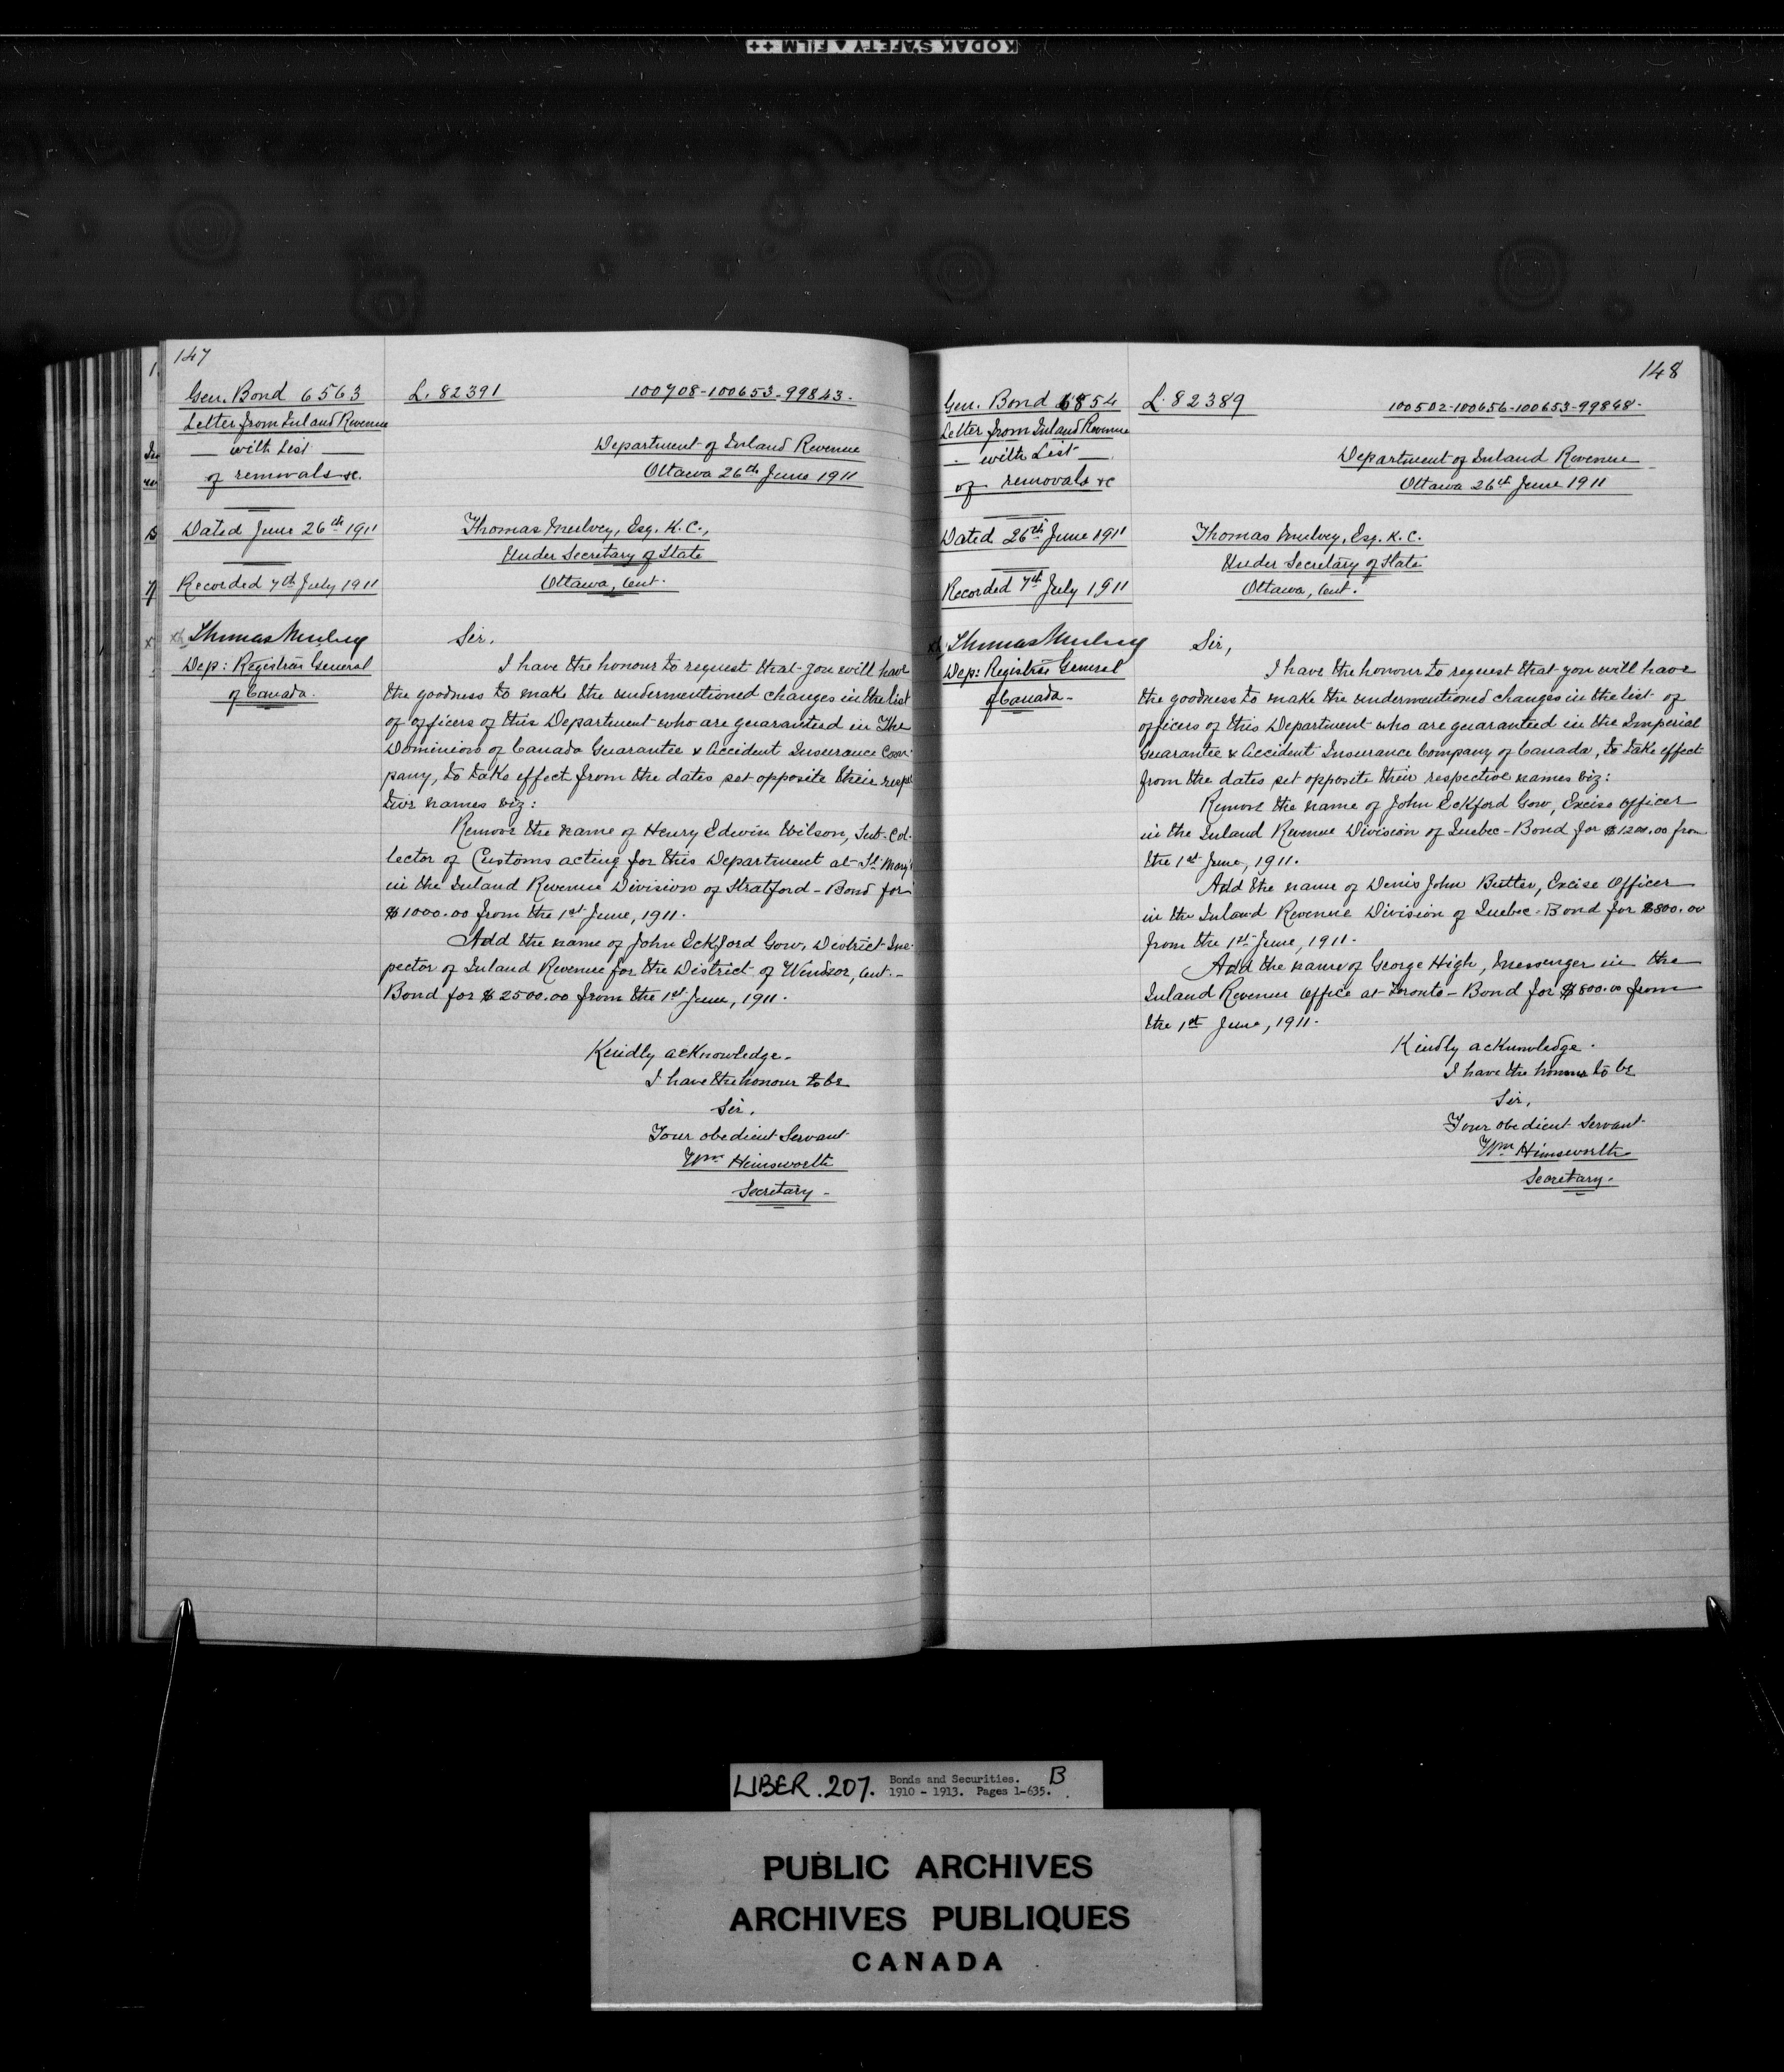 KODAK SAFETY ▲ FILM ++
147
Gen. Bond 6563
Letter from Inland Revenue
— with List —
of removals &c.
Dated June 26th 1911
Recorded 7th July 1911
Thomas Mulvey
Dep: Registrar General
of Canada.
L. 82391
100708-100653-99843-
Department of Inland Revenue
Ottawa 26th June 1911
Thomas Mulvey, Esq. K.C.,
Under Secretary of State
Ottawa, Ont.
Sir,
I have the honour to request that you will have
the goodness to make the undermentioned changes in the list
of officers of this Department who are guaranteed in The
Dominion of Canada Guarantee & Accident Insurance Com-
pany, to take effect from the dates set opposite their respec
tive names viz:
Remove the name of Henry Edwin Wilson, Sub-Col-
lector of Customs acting for this Department at St. Mary's
in the Inland Revenue Division of Stratford - Bond for
$1000.00 from the 1st June, 1911.
Add the name of John Eckford Gow, District Ins-
pector of Inland Revenue for the District of Windsor, Ont. -
Bond for $2500.00 from the 1st June, 1911.
Kindly acknowledge.
I have the honour to be
Sir,
Your obedient Servant
Wm Himsworth
Secretary -
148
Gen. Bond 6854
Letter from Inland Revenue
— with List —
of removals &c
Dated 26th June 1911
Recorded 7th July 1911
Thomas Mulvey
Dep: Registrar General
of Canada -
L. 82389
100502-100656-100653-99848-
Department of Inland Revenue
Ottawa 26th June 1911
Thomas Mulvey, Esq. K.C.
Under Secretary of State
Ottawa, Ont.
Sir,
I have the honour to request that you will have
the goodness to make the undermentioned changes in the list of
officers of this Department who are guaranteed in the Imperial
Guarantee & Accident Insurance Company of Canada, to take effect
from the dates set opposite their respective names viz:
Remove the name of John Eckford Gow, Excise Officer
in the Inland Revenue Division of Quebec - Bond for $1200.00 from
the 1st June, 1911.
Add the name of Denis John Butler, Excise Officer
in the Inland Revenue Division of Quebec - Bond for $800.00
from the 1st June, 1911.
Add the name of George High, Messenger in the
Inland Revenue Office at Toronto - Bond for $800.00 from
the 1st June, 1911.
Kindly acknowledge.
I have the honour to be
Sir,
Your obedient Servant
Wm Himsworth
Secretary.
LIBER. 207. Bonds and Securities. B
1910 - 1913. Pages 1-635.
PUBLIC ARCHIVES
ARCHIVES PUBLIQUES
CANADA